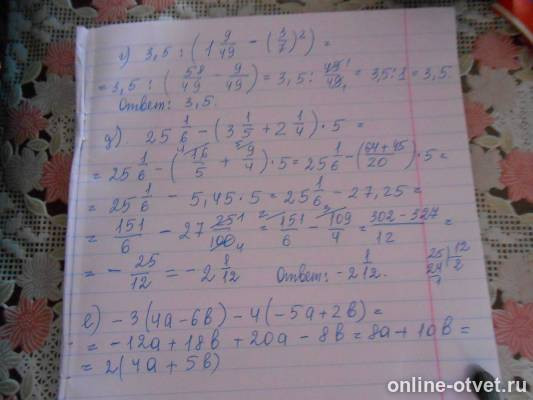 г) 3,5 : (1 9/49 − (3/7)²) =
= 3,5 : (58/49 − 9/49) = 3,5 : 49/49 = 3,5 : 1 = 3,5.
Ответ: 3,5.
д). 25 1/6 − (3 1/5 + 2 1/4) · 5 =
= 25 1/6 − (16/5 + 9/4) · 5 = 25 1/6 − (64+45/20) · 5 =
= 25 1/6 − 5,45 · 5 = 25 1/6 − 27,25 =
= 151/6 − 27 25/100 = 151/6 − 109/4 = 302−327/12 =
= − 25/12 = −2 1/12 Ответ: −2 1/12.
е) −3(4a−6b) − 4(−5a+2b) =
= −12a + 18b + 20a − 8b = 8a + 10b =
= 2(4a + 5b)
online-otvet.ru